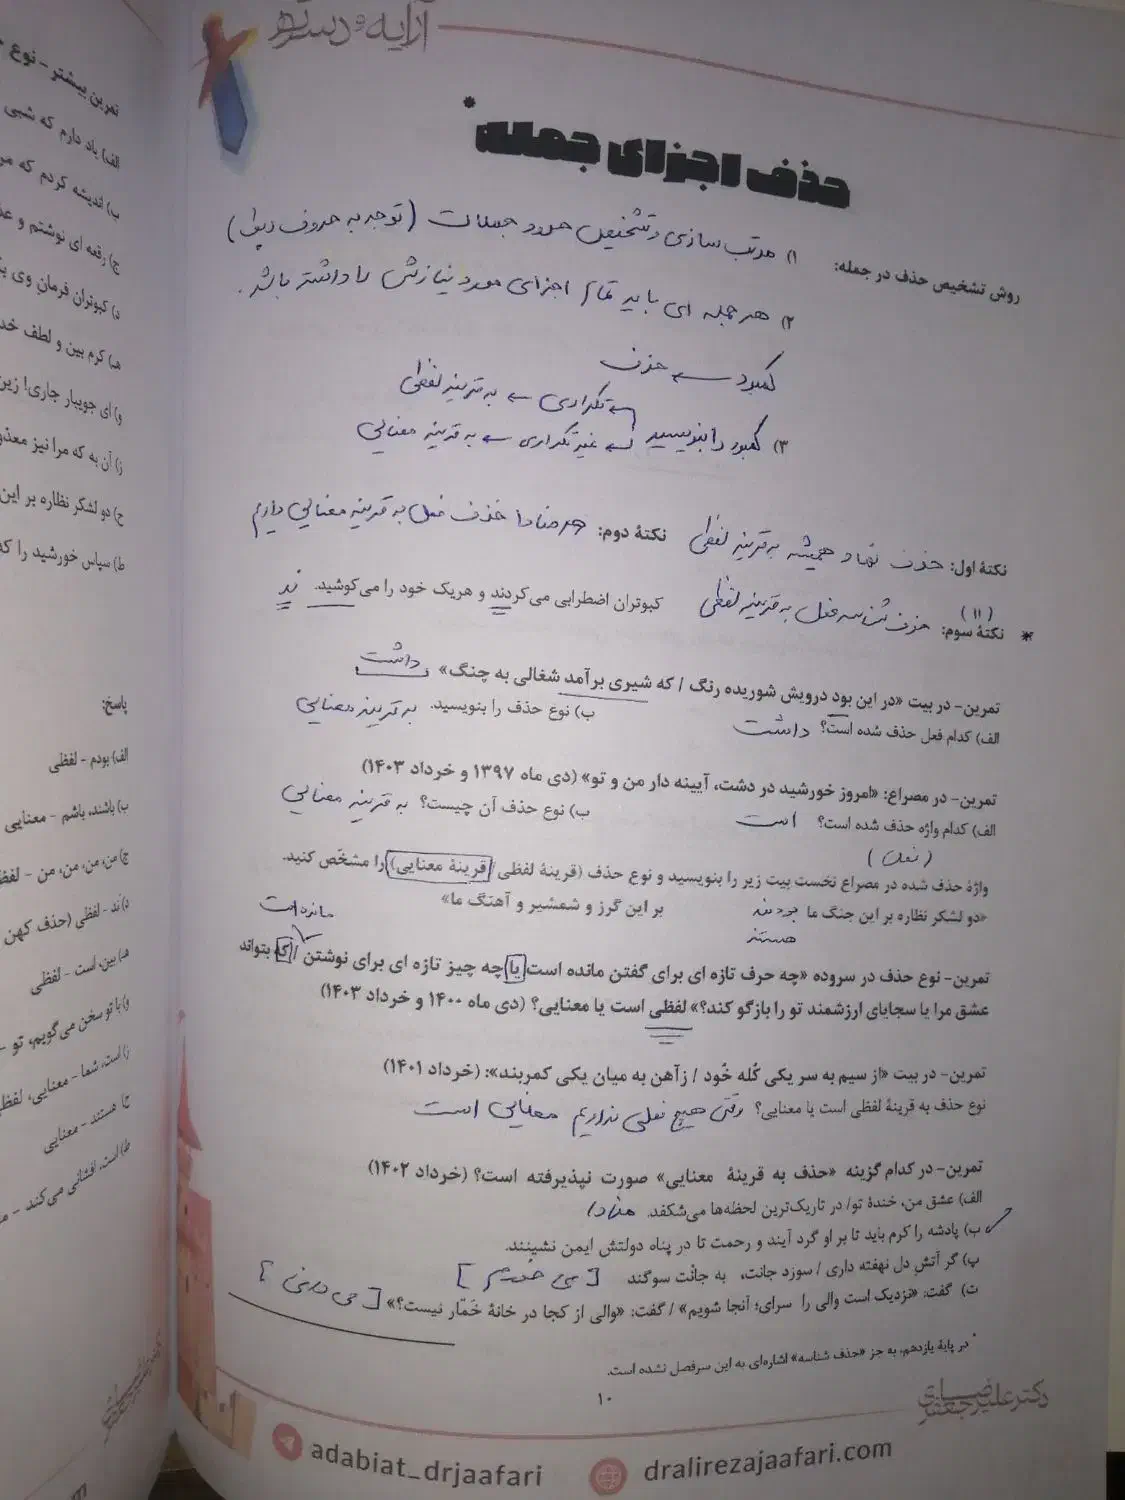 آرایه و دستور
حذف اجزای جمله*
روش تشخیص حذف در جمله: ۱) مرتب سازی و تشخیص حدود جملات (توجه به حروف ربط)
۲) هر جمله ای باید تمام اجزای مورد نیازش را داشته باشد.
کمبود ← حذف
۳) کمبود را بنویسید
← تکراری ← به قرینه لفظی
← غیرتکراری ← به قرینه معنایی
نکتهٔ اول: حذف نهاد همیشه به قرینه لفظی
نکتهٔ دوم: هر منادا حذف فعل به قرینه معنایی داریم
(۱۱)
* نکتهٔ سوم: حذف شناسه فعل به قرینه لفظی کبوتران اضطرابی می‌کردند و هریک خود را می‌کوشید. ند
تمرین- در بیت «در این بود درویش شوریده رنگ / که شیری برآمد شغالی به چنگ» داشت
الف) کدام فعل حذف شده است؟ داشت ب) نوع حذف را بنویسید. به قرینه معنایی
تمرین- در مصراع: «امروز خورشید در دشت، آیینه دار من و تو» (دی ماه ۱۳۹۷ و خرداد ۱۴۰۳)
الف) کدام واژه حذف شده است؟ است ب) نوع حذف آن چیست؟ به قرینه معنایی
(فعل)
واژهٔ حذف شده در مصراع نخست بیت زیر را بنویسید و نوع حذف (قرینهٔ لفظی / قرینهٔ معنایی) را مشخّص کنید.
«دو لشکر نظاره بر این جنگ ما بودند بر این گرز و شمشیر و آهنگ ما»
هستند
مانده است
تمرین- نوع حذف در سروده «چه حرف تازه ای برای گفتن مانده است یا چه چیز تازه ای برای نوشتن / که بتواند
عشق مرا یا سجایای ارزشمند تو را بازگو کند؟» لفظی است یا معنایی؟ (دی ماه ۱۴۰۰ و خرداد ۱۴۰۳)
تمرین- در بیت «از سیم به سر یکی کُله خُود / زآهن به میان یکی کمربند»: (خرداد ۱۴۰۱)
نوع حذف به قرینهٔ لفظی است یا معنایی؟ وقتی هیچ فعلی نداریم معنایی است
تمرین- در کدام گزینه «حذف به قرینهٔ معنایی» صورت نپذیرفته است؟ (خرداد ۱۴۰۲)
الف) عشق من، خندهٔ تو/ در تاریک‌ترین لحظه‌ها می‌شکفد. منادا
ب) پادشه را کرم باید تا بر او گرد آیند و رحمت تا در پناه دولتش ایمن نشینند.
پ) گر آتشِ دل نهفته داری / سوزد جانت، به جانْت سوگند [می خورم]
ت) گفت: «نزدیک است والی را سرای؛ آنجا شویم» / گفت: «والی از کجا در خانهٔ خَمّار نیست؟»
* در پایهٔ یازدهم، به جز «حذف شناسه» اشاره‌ای به این سرفصل نشده است.
۱۰
دکتر علیرضا جعفری
adabiat_drjaafari
dralirezajaafari.com
تمرین بیشتر - نوع
الف) یاد دارم که شبی
ب) اندیشه کردم که
ج) رقعه ای نوشتم و
د) کبوتران فرمان وی
هـ) کرم بین و لطف
و) ای جویبار جاری!
ز) آن به که مرا نیز
ح) دو لشکر نظاره بر این
ط) سپاس خورشید را
پاسخ:
الف) بودم - لفظی
ب) باشند، باشم - معنایی
ج) من، من، من، من -
د) ند - لفظی (حذف کهن
هـ) بین، است - لفظی
و) با تو سخن می‌گویم، تو -
ز) است، شما - معنایی،
ح) هستند - معنایی
ط) است، افشانی می‌کند -